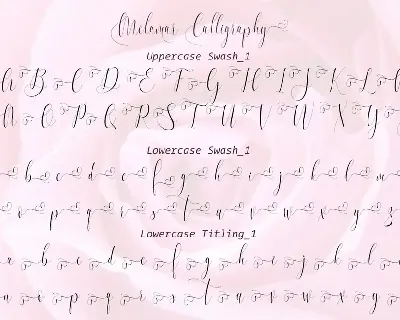 Melamar Calligraphy
Uppercase Swash_1
A B C D E F G H I J K L
O P Q R S T U V W X Y
Lowercase Swash_1
a b c d e f g h i j k l m
o p q r s t u v w x y z
Lowercase Titling_1
a b c d e f g h i j k l
n o p q r s t u v w x y